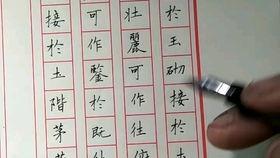 於玉砌接於
壯麗可作往
可作鑒於既
接於土階茅